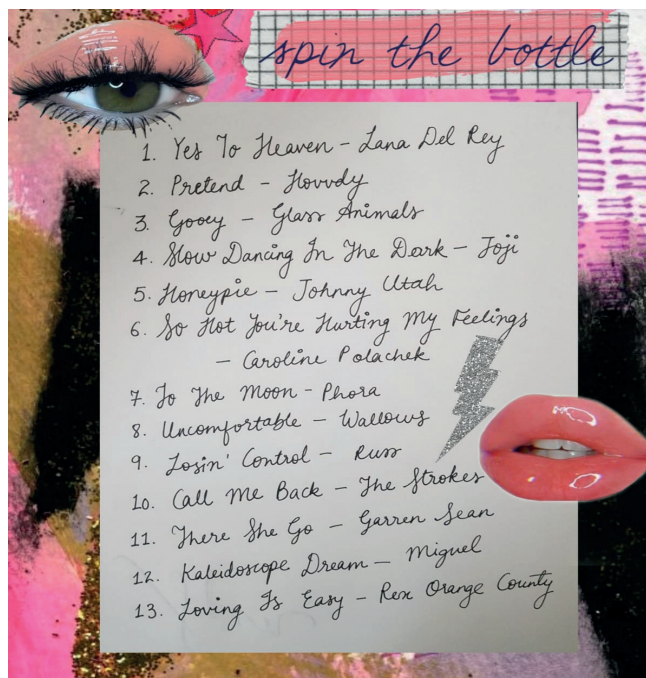 spin the bottle
1. Yes To Heaven - Lana Del Rey
2. Pretend - Hovvdy
3. Gooey - Glass Animals
4. Slow Dancing In The Dark - Joji
5. Honeypie - Johnny Utah
6. So Hot You're Hurting My Feelings
- Caroline Polachek
7. To The Moon - Phora
8. Uncomfortable - Wallows
9. Losin' Control - Russ
10. Call Me Back - The Strokes
11. There She Go - Garren Sean
12. Kaleidoscope Dream - Miguel
13. Loving Is Easy - Rex Orange County